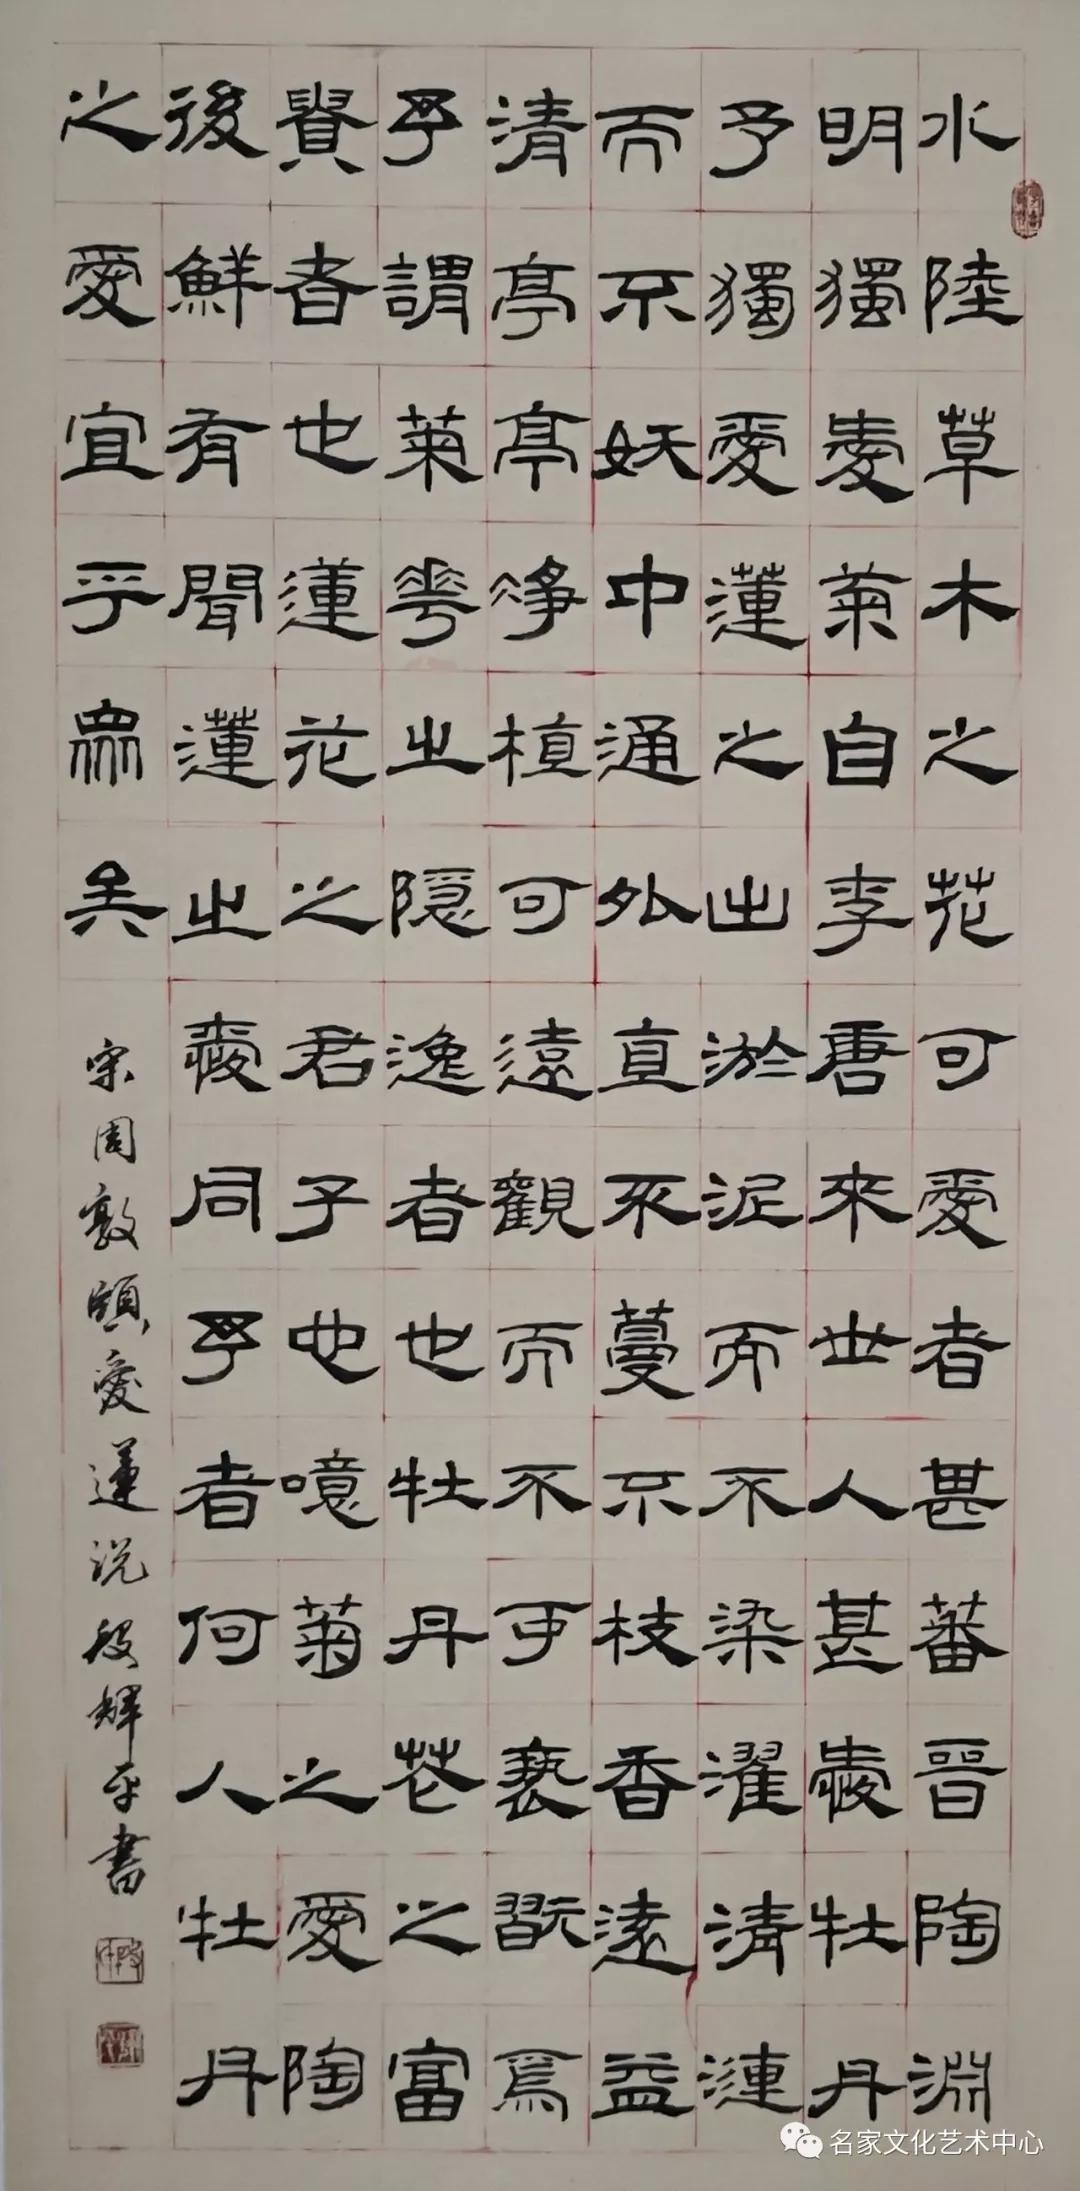 水陸草木之花可愛者甚蕃晉陶淵
明獨愛菊自李唐來世人甚愛牡丹
予獨愛蓮之出淤泥而不染濯清漣
而不妖中通外直不蔓不枝香遠益
清亭亭淨植可遠觀而不可褻翫焉
予謂菊華之隱逸者也牡丹花之富
貴者也蓮花之君子也噫菊之愛陶
後鮮有聞蓮之愛同予者何人牡丹
之愛宜乎眾矣
宋周敦頤愛蓮说段輝平書
名家文化艺术中心